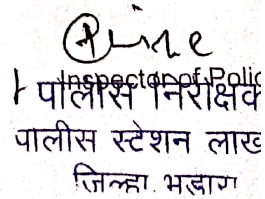 Inspector of Polic
पोलीस निरीक्षक
पोलीस स्टेशन लाख
जिल्हा. भंडारा